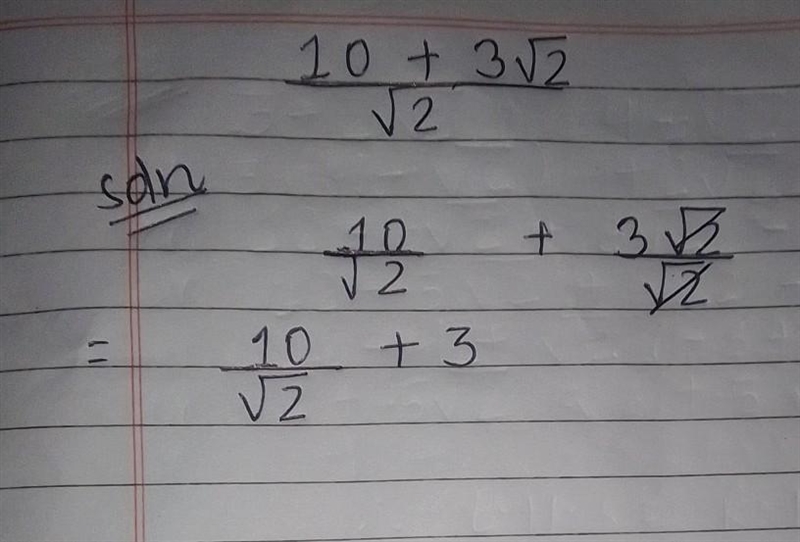 10 + 3√2
√2
soln
10/√2 + 3√2/√2
= 10/√2 + 3